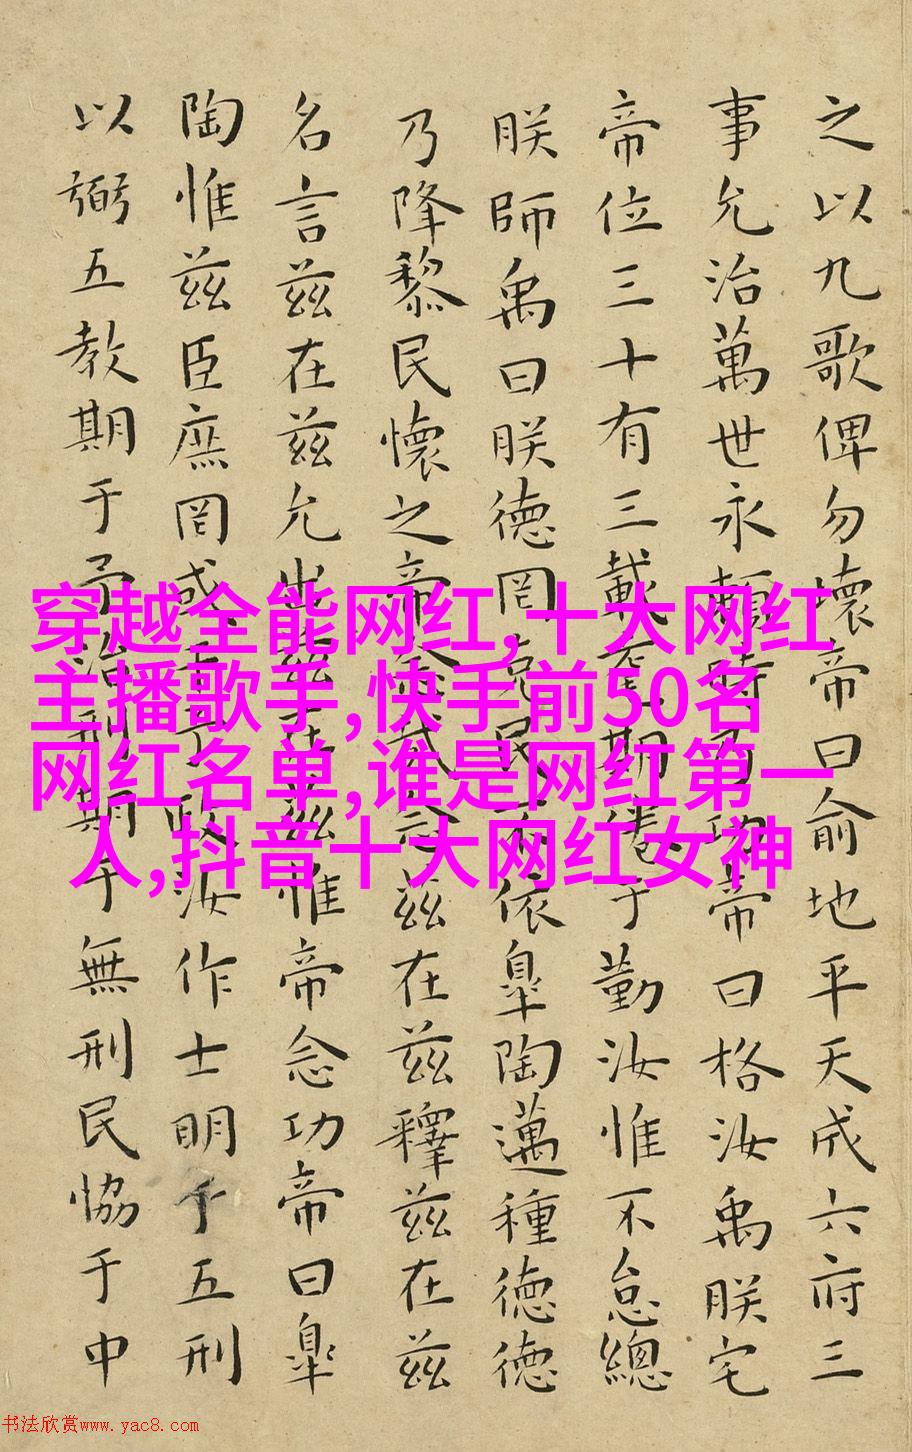 之以九歌俾勿壞帝曰俞地平天成六府三
事允治萬世永賴時乃功帝曰格汝禹朕宅
帝位三十有三載耄期倦于勤汝惟不怠總
朕師禹曰朕德罔克民不依臯陶邁種德德
乃降黎民懷之帝念哉念兹在兹釋兹在兹
名言兹在兹允出兹在兹惟帝念功帝曰臯
陶惟兹臣庶罔或干予政汝作士明于五刑
以弼五教期于予治刑期于無刑民協于中
穿越全能网红,十大网红
主播歌手,快手前50名
网红名单,谁是网红第一
人,抖音十大网红女神
书法欣赏www.yac8.com